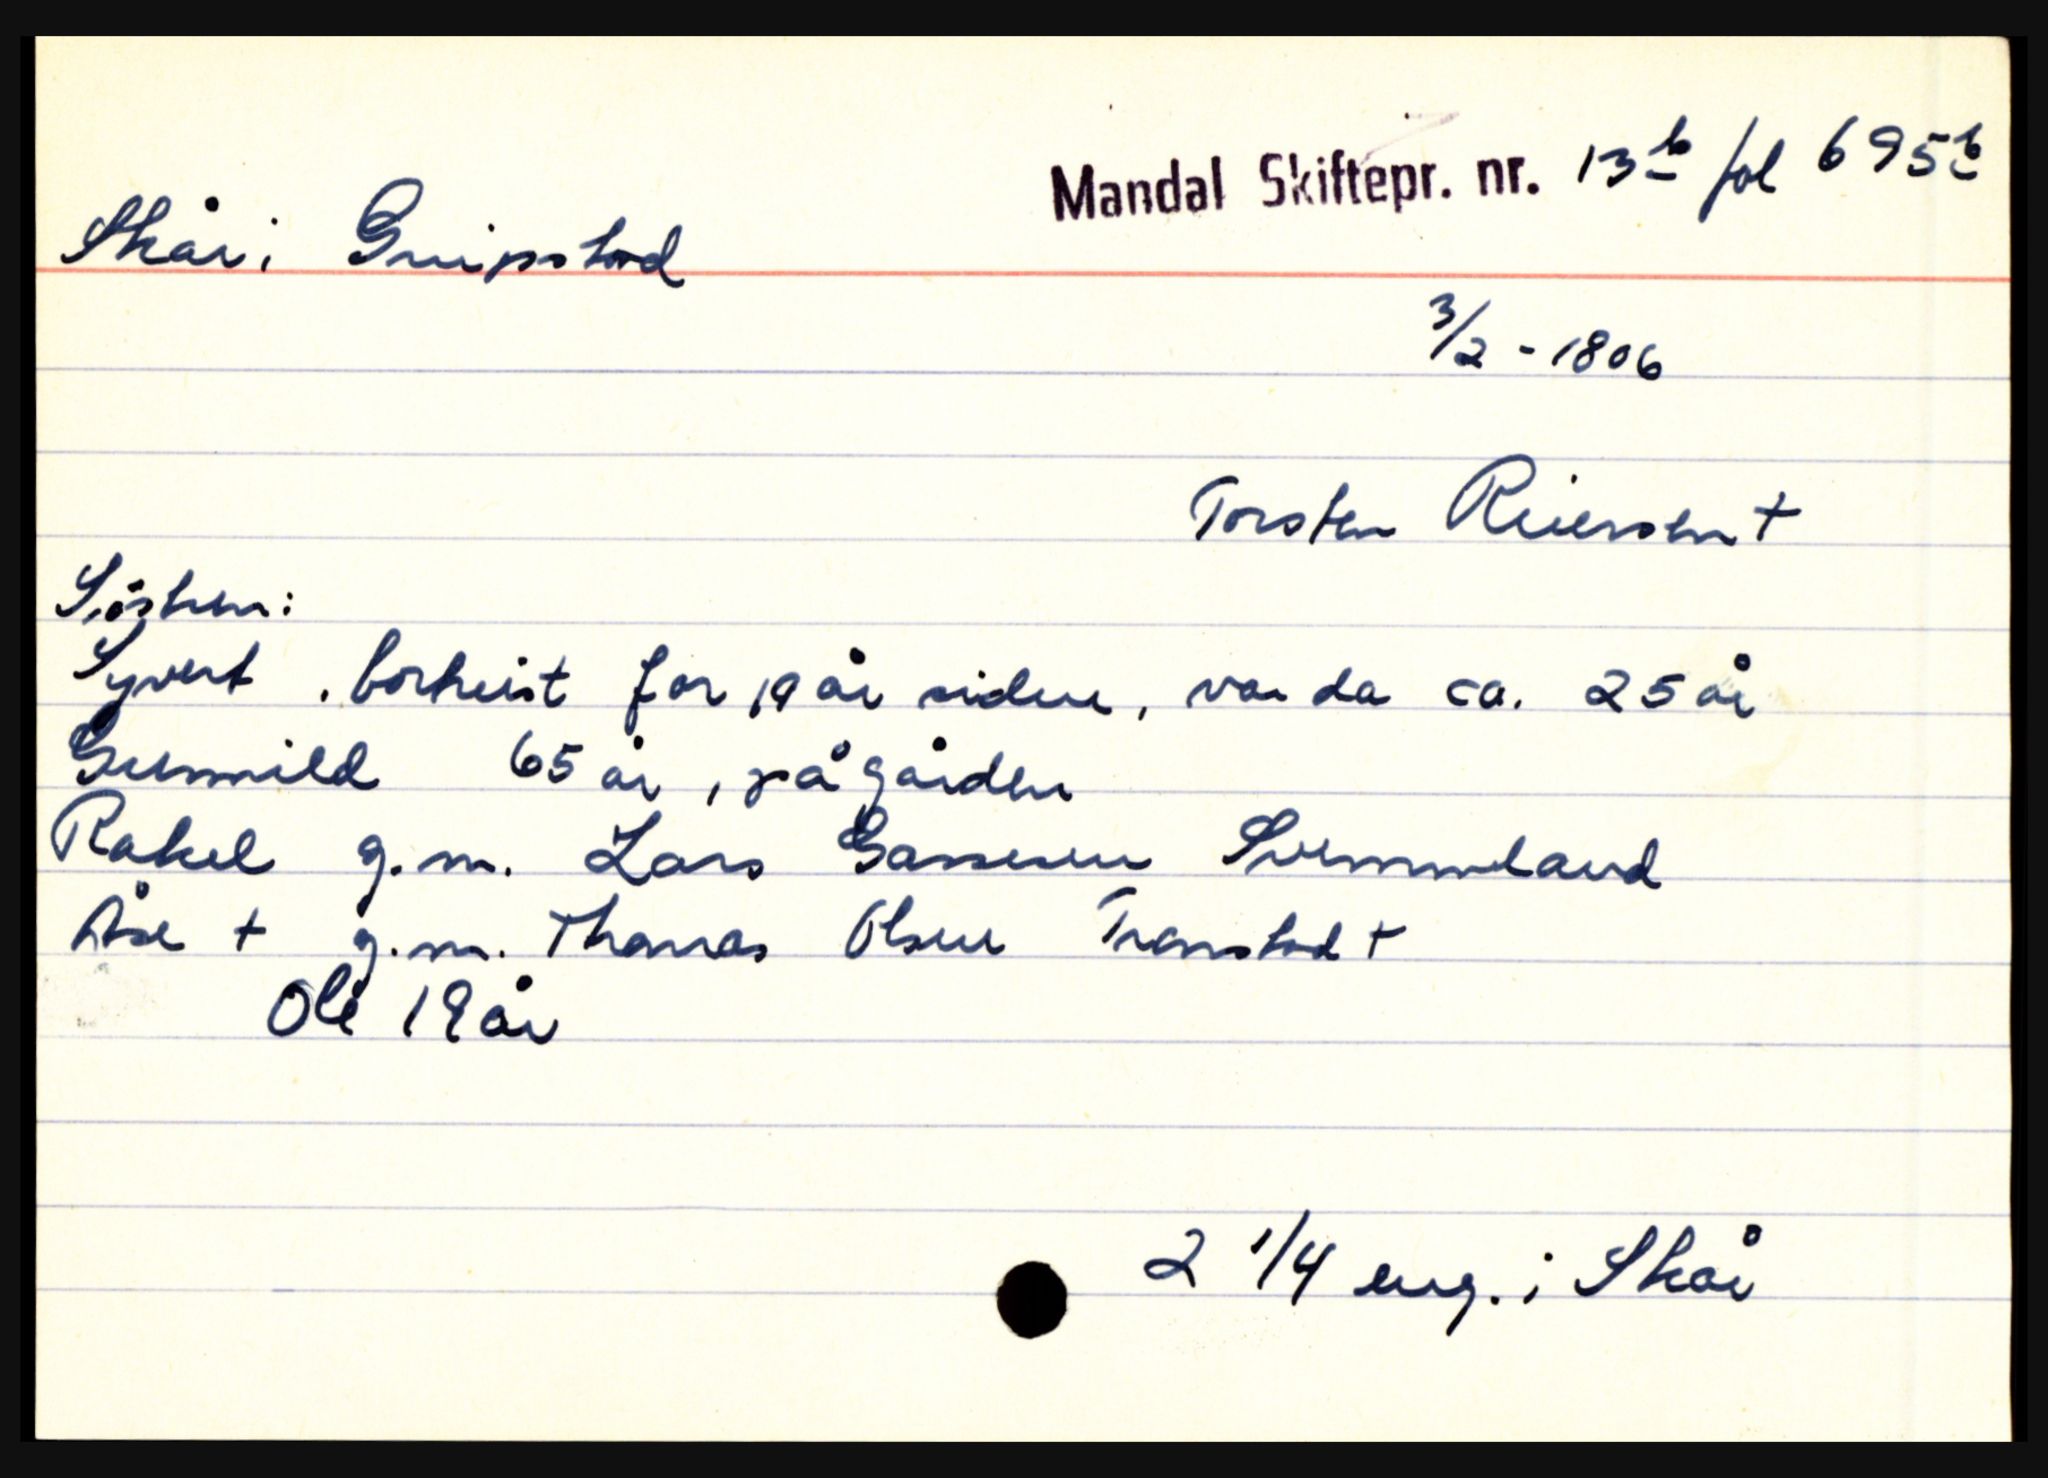 Mandal Skiftepr. nr. 13b fol 695b
Skår i Gripstad
3/2 - 1806
Torsten Reiersen +
Søsken:
Syvert, bortreist for 19 år siden, var da ca. 25 år
Gunnild 65 år, på gården
Rakel g.m. Lars Gassesen Svennveland
Åse + g.m. Thomas Olsen Transtad +
Ole 19 år
2 1/4 eng. i Skår